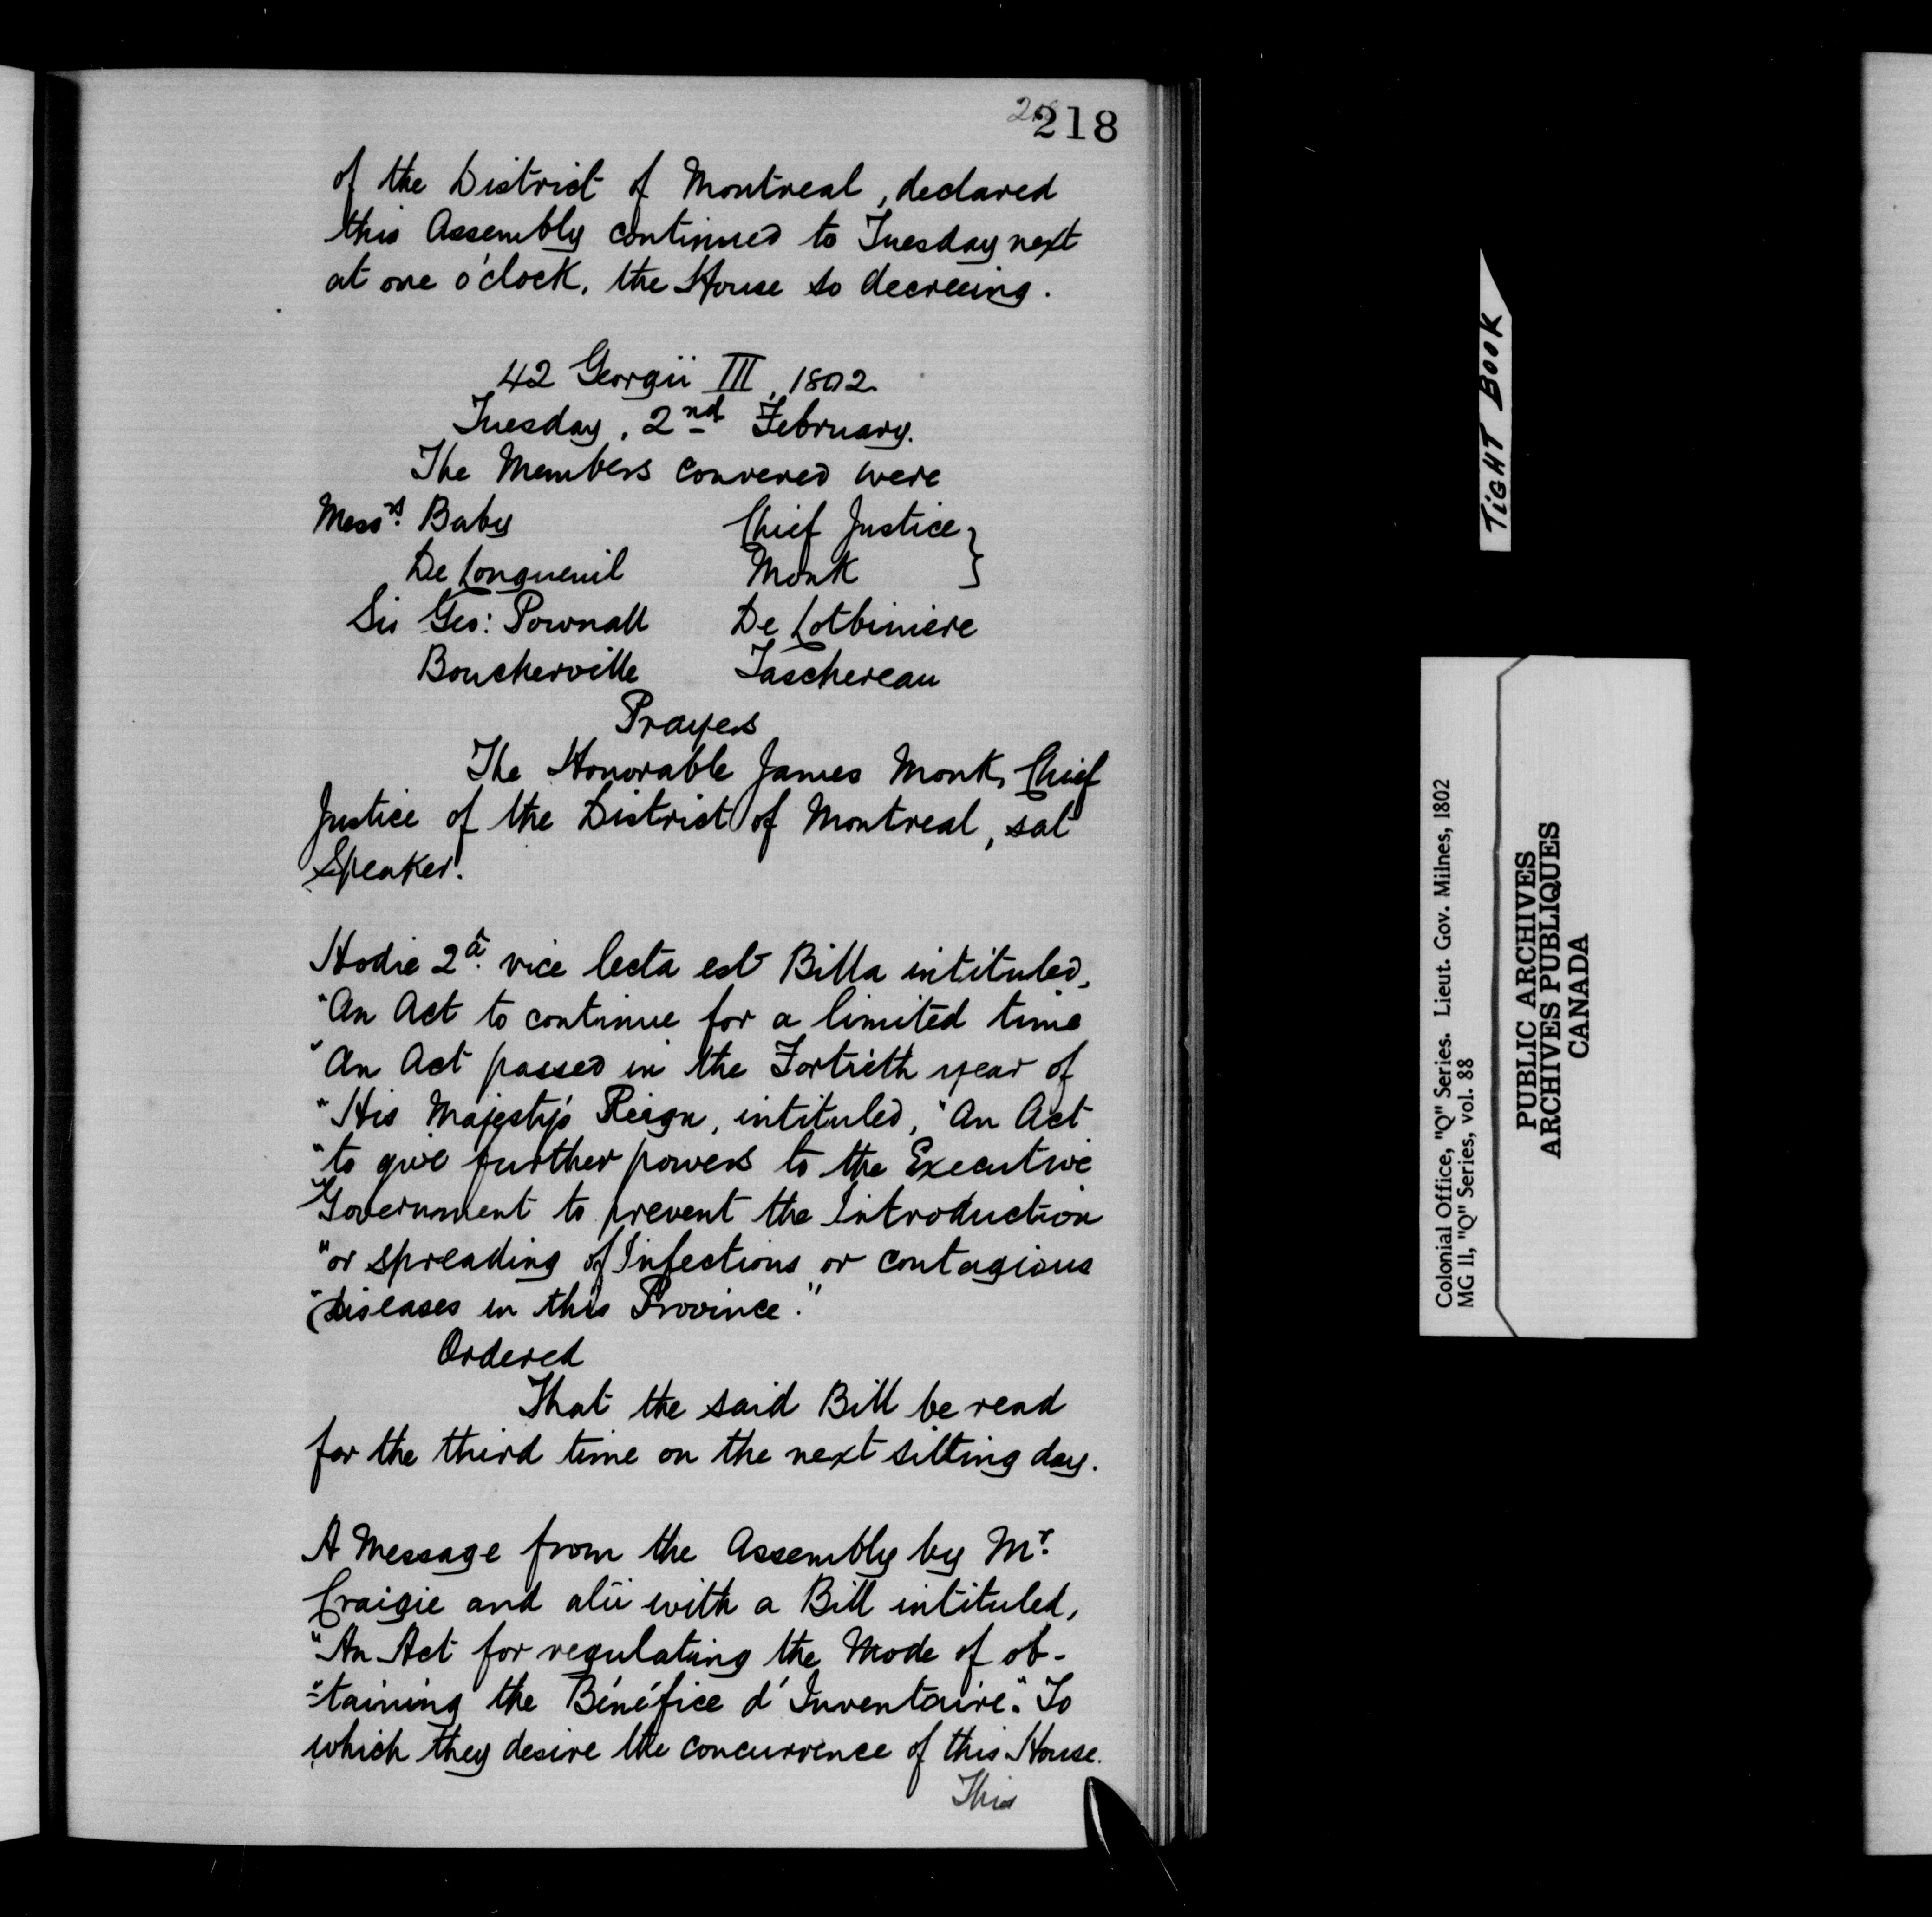 218
of the District of Montreal, declared
this Assembly continued to Tuesday next
at one o'clock, the House so decreeing.
42 Georgii III, 1802
Tuesday, 2nd February.
The Members convened were
Messrs. Baby Chief Justice }
De Longueuil Monk
Sir Geo: Pownall De Lotbiniere
Boucherville Taschereau
Prayers
The Honorable James Monk, Chief
Justice of the District of Montreal, sat
Speaker.
Hodie 2â. vice lecta est Billa intituled,
"An Act to continue for a limited time
"An Act passed in the Fortieth year of
"His Majesty's Reign, intituled, "An Act
"to give further powers to the Executive
"Government to prevent the Introduction
"or spreading of Infectious or contagious
"Diseases in this Province."
Ordered
That the said Bill be read
for the third time on the next sitting day.
A Message from the Assembly by Mr.
Craigie and alii with a Bill intituled,
"An Act for regulating the Mode of ob-
"taining the Bénéfice d'Inventaire." To
which they desire the concurrence of this House.
This
TIGHT BOOK
Colonial Office, "Q" Series. Lieut. Gov. Milnes, 1802
MG 11, "Q" Series, vol. 88
PUBLIC ARCHIVES
ARCHIVES PUBLIQUES
CANADA